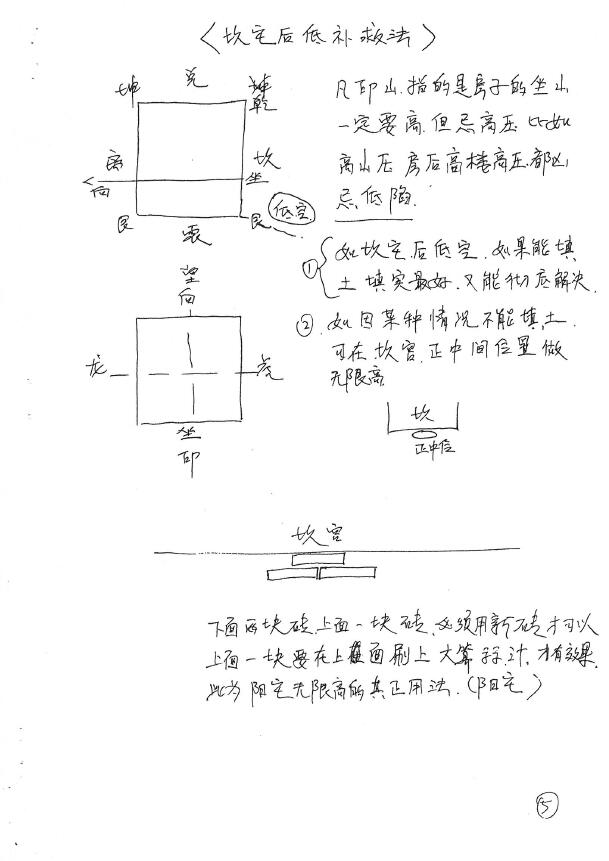 〈坎宅后低补救法〉
坤 兑 乾
离 坎
向 坐
艮 震 艮
低空
凡印山.指的是房子的坐山
一定要高.但忌高压 比如
高山压 房后高楼高压.都凶
忌低陷.
① 如坎宅后低空.如果能填
土填实最好.又能彻底解决.
② 如因某种情况不能填土.
可在坎宫.正中间位置做
无限高
望
向
龙 虎
坐
印
坎
正中位
坎宫
下面两块砖.上面一块砖.必须用新砖才可以
上面一块要在上面刷上大算 汁.才有效果.
此为阳宅无限高的真正用法.(阳宅)
⑤